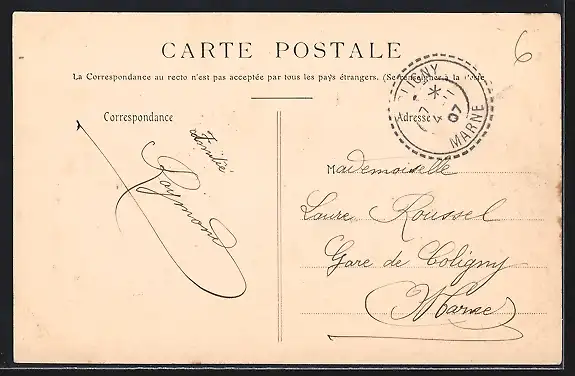 6
CARTE POSTALE
La Correspondance au recto n'est pas acceptée par tous les pays étrangers. (Se renseigner à la Poste
Correspondance
Adresse
07
MARNE
Amitié
Raymond
Mademoiselle
Laure Roussel
Gare de Coligny
Marne